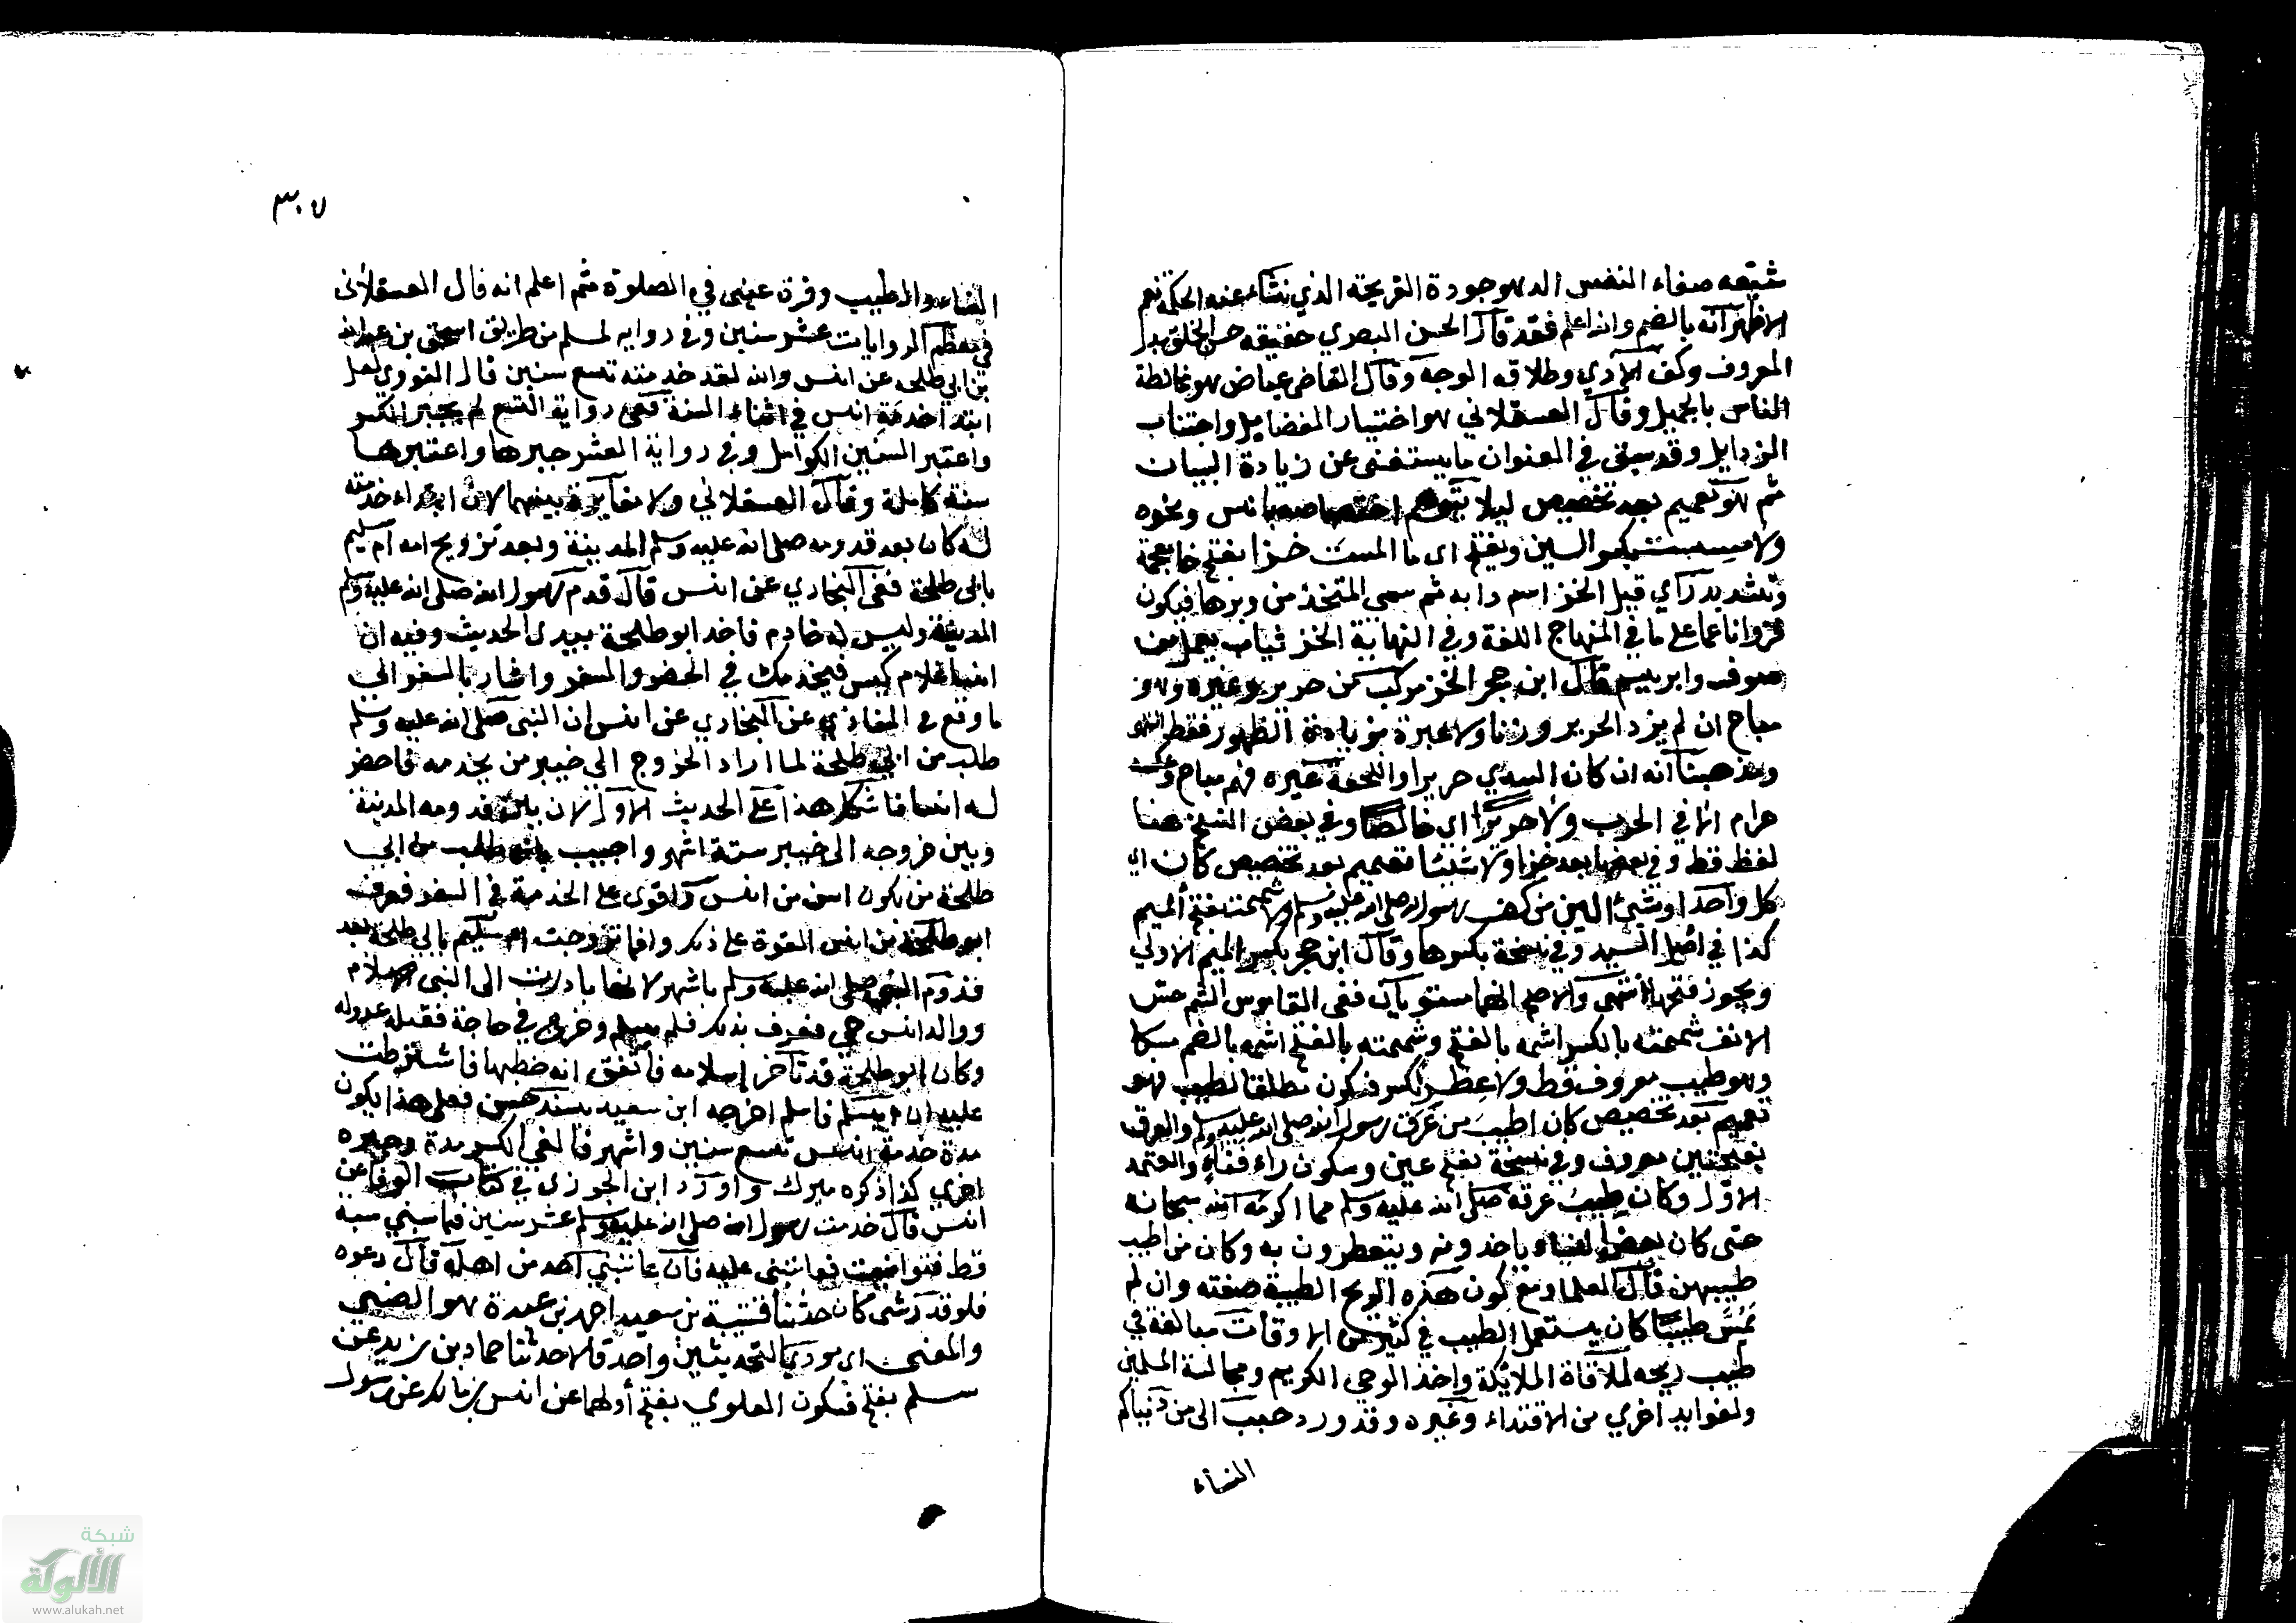 شيعه صفاء النفس الد هو جودة القريحة الذي نشاء عنه الحكمة نعم
الاظهر انه بالضم والله اعلم فقد قال الحسن البصري حقيقه حسن الخلق بذل
المعروف وكف الاذي وطلاقه الوجه وقال القاضي عياض هو مخالطة
الناس بالجميل وقال العسقلاني هو اختيار الفضايل واجتناب
الرذايل وقد سبق في العنوان ما يستغنى عن زيادة البيان
ثم هو تعميم بعد تخصيص ليلا يتوهم اختصاصه بانس ونحوه
ولا مسست بكسر السين ويفتح اى ما المست خزا بفتح خا معجمة
وتشديد زاي قيل الخز اسم دابه ثم سمى المتخذ من وبرها فيكون
فروا ناعما على ما في المنهاج اللغة وفي النهاية الخز ثياب يعمل من
صوف وابريسم قال ابن حجر الخز مركب من حرير وغيره وهو
مباح ان لم يزد الحرير وزنا ولا عبرة بزيادة الظهور فقط انتهى
ومذهبنا انه ان كان السدي حريرا واللحمة غيره فهو مباح وعكسه
حرام الا في الحرب ولا حريرا اي خالصا وفي بعض النسخ هنا
لفظ قط وفي بعضها بعد خزا ولا شيئا تعميم بعد تخصيص كان اي
كل واحد او شيئ الين من كف رسول الله صلى الله عليه وسلم ولا شممت بفتح الميم
كذا في اصل السيد وفي نسخة بكسرها وقال ابن حجر بكسر الميم الاولي
ويجوز فتحها انتهى والاصح انهما مستويان ففي القاموس الشم حس
الانف شممته بالكسر اشمه بالفتح وشممته بالفتح اشمه بالضم مسكا
وهو طيب معروف قط ولا عطرا بكسر فسكون مطلقا لطيب فهو
تعميم بعد تخصيص كان اطيب من عرق رسول الله صلى الله عليه وسلم والعرق
بفتحتين معروف وفي نسخة بفتح عين وسكون راء ففاء والمعتمد
الاول وكان طيب عرقه صلى الله عليه وسلم مما اكرمه الله سبحانه
حتى كان بعض النساء ياخذونه ويتعطرون به وكان من اطيب
طيبهن قال العلماء ومع كون هذه الريح الطيبة صفته وان لم
يمس طيبا كان يستعمل الطيب في كثير من الاوقات مبالغة في
طيب ريحه لملاقاة الملايكة واخذ الوحي الكريم ومجالسة المسلمين
ولفوايد اخري من الاقتداء وغيره وقد ورد حبب الى من دنياكم
النساء
٣٠٧
النساء والطيب وقرة عيني في الصلوة ثم اعلم انه قال العسقلانى
في معظم الروايات عشر سنين وفي روايه لمسلم من طريق اسحق بن عبد الله
بن ابي طلحه عن انس والله لقد خدمته تسع سنين قال النووي لعل
ابتدا خدمة انس في اثناء السنة ففي رواية التسع لم يجبر الكسر
واعتبر السنين الكوامل وفي رواية العشر جبرها واعتبرها
سنة كاملة وقال العسقلاني ولا مغايرة بينهما لان ابتداء خدمته
له كان بعد قدومه صلى الله عليه وسلم المدينة وبعد تزويج امه ام سليم
بابي طلحة ففي البخاري عن انس قال قدم رسول الله صلى الله عليه وسلم
المدينة وليس له خادم فاخذ ابو طلحة بيدي الحديث وفيه ان
انسا غلام كيس فيخدمك في الحضر والسفر واشار بالسفر الي
ما وقع في المغازي عن البخاري عن انس ان النبي صلى الله عليه وسلم
طلب من ابي طلحة لما اراد الخروج الي خيبر من يخدمه فاحضر
له انسا فاشكل هذا على الحديث الاول لان بين قدومه المدينة
وبين خروجه الى خيبر ستة اشهر واجيب بانه طلب من ابي
طلحة من يكون اسن من انس واقوى على الخدمة في السفر فعرف
ابو طلحة من انس القوة على ذلك وانما تزوجت ام سليم بابي طلحة بعد
قدوم النبي صلى الله عليه وسلم باشهر لانها بادرت الى النبي الاسلام
ووالد انس حي فعرف بذلك فلم يسلم وخرج في حاجة فقتله عدو له
وكان ابو طلحة قد تاخر اسلامه فاتفق انه خطبها فاشترطت
عليه ان يسلم فاسلم اخرجه ابن سعيد بسند حسن فعلى هذا يكون
مدة خدمة انس تسع سنين واشهر فالغي الكسر مدة وجبره
اخري كذا ذكره ميرك واورد ابن الجوزي في كتاب الوفا عن
انس قال خدمت رسول الله صلى الله عليه وسلم عشر سنين فما سبني سبة
قط فتوانيت فعاتبني عليه فان عاتبني احد من اهله قال دعوه
فلو قدر شى كان حدثنا قتيبة بن سعيد احمد بن عبدة هو الضبي
والمعنى اي مودي التحديثين واحد قالا حدثنا حماد بن زيد عن
سلم بفتح فسكون العلوي بفتح اولهما عن انس بن مالك عن رسول
شبكة
الألوكة
www.alukah.net